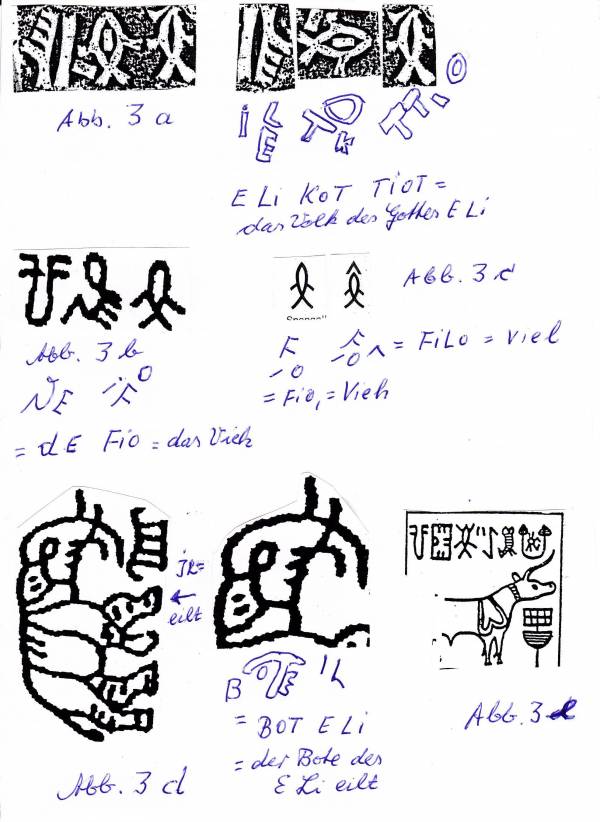 Abb. 3 a
i LE TOK TT i O
E Li KOT TiOT =
das Volk des Gottes E Li
Abb. 3 c
Abb. 3 b
F iO
= FiLo = viel
= Fio, = Vieh
= dE Fio = das Vieh
JL =
← eilt
B OTE iL
= BOT E Li
= der Bote des
E Li eilt
Abb. 3 d
Abb. 3 e